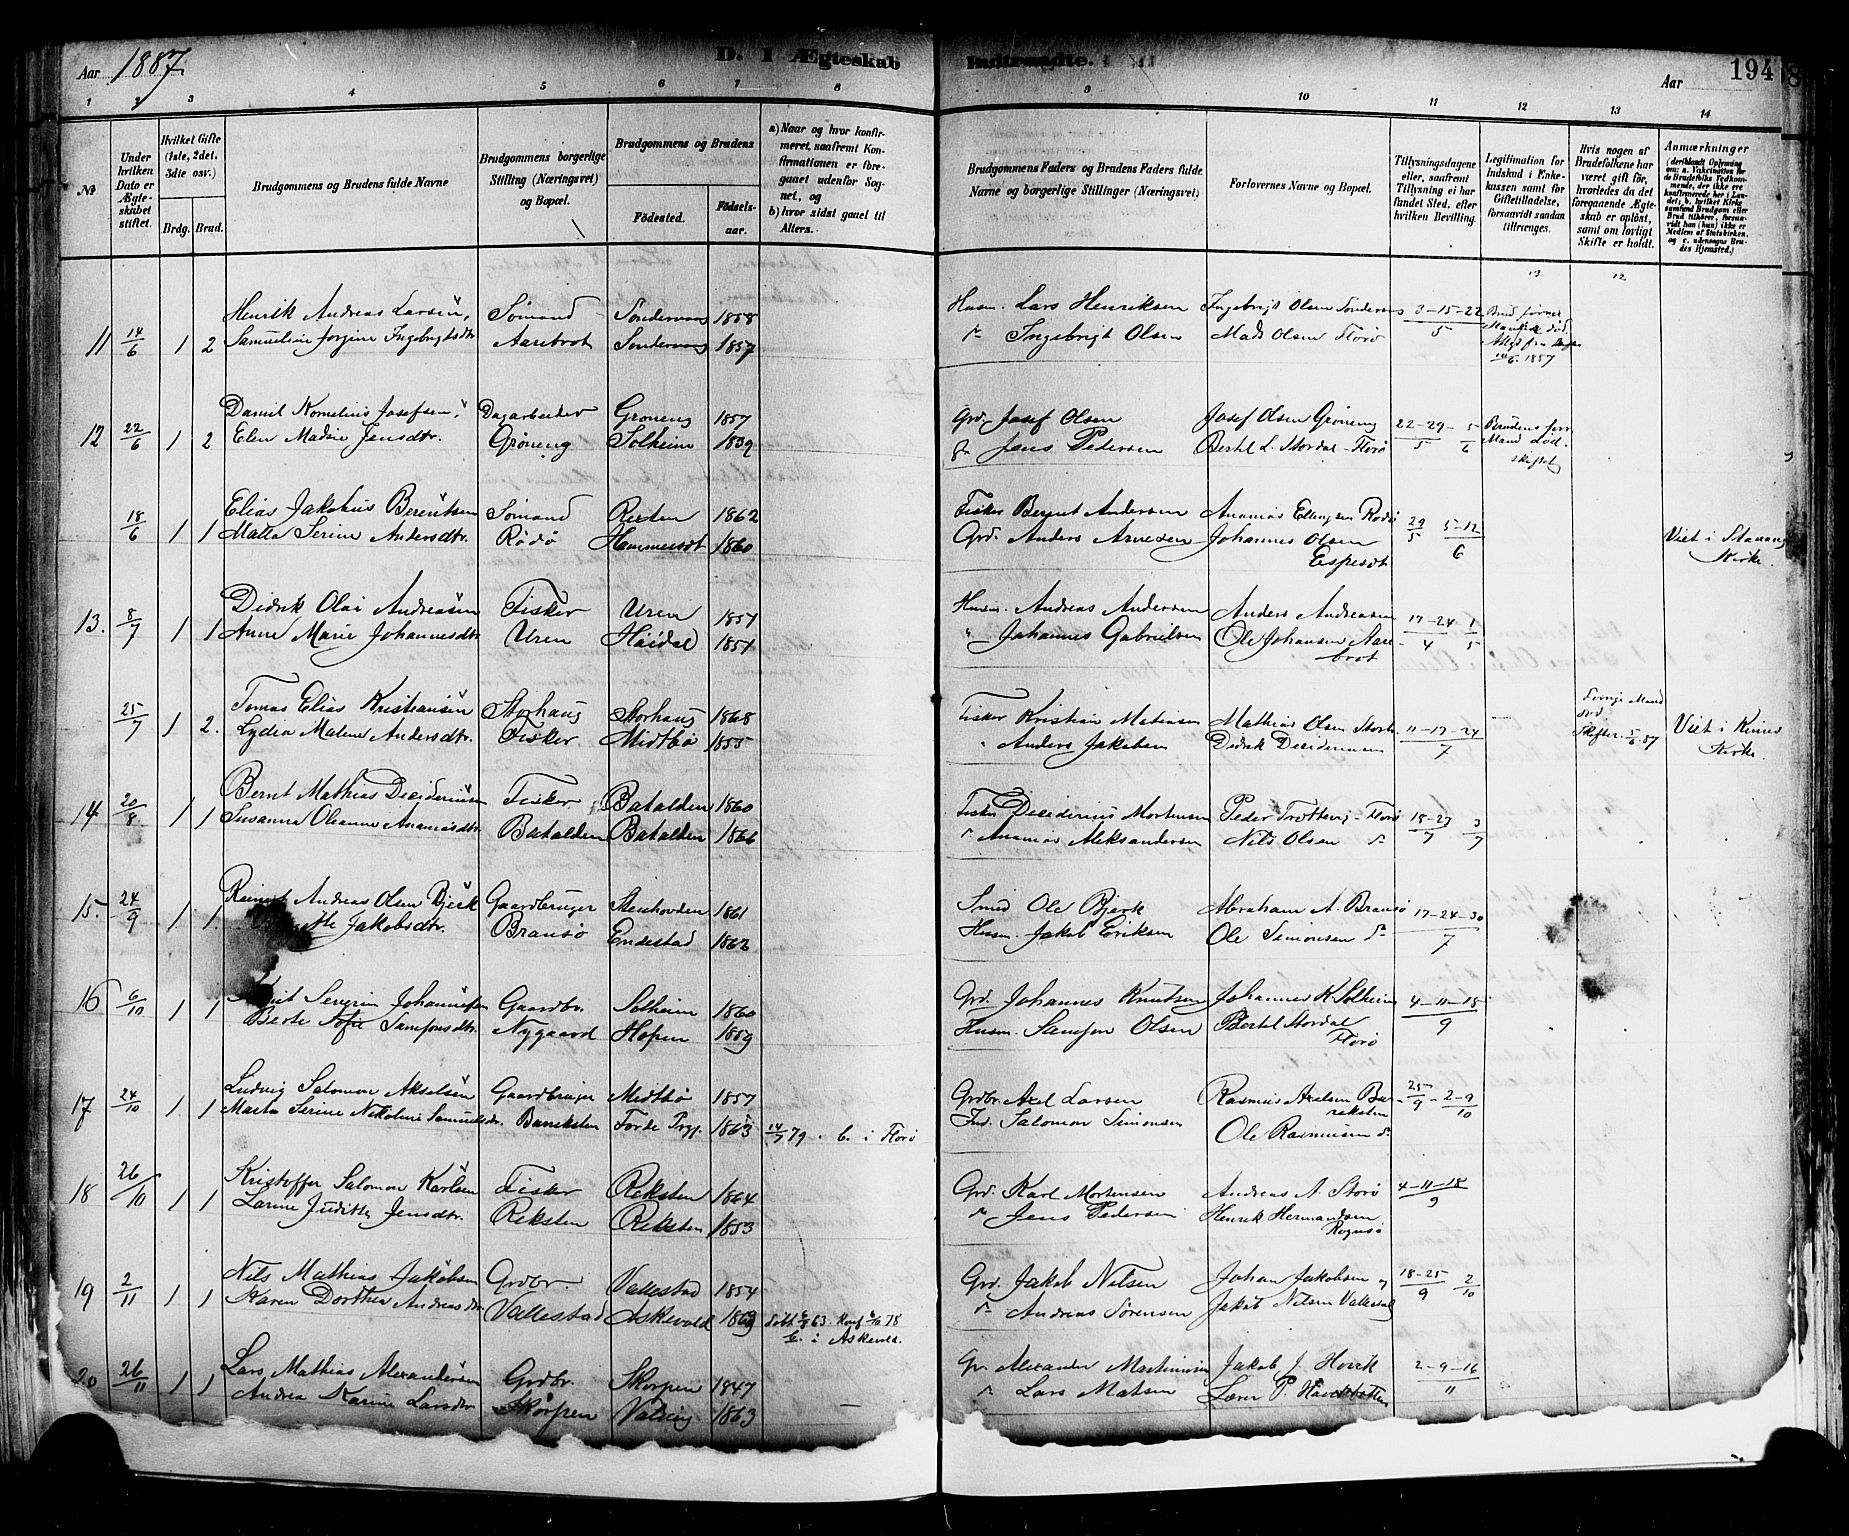 Aar 1887.
D. I Ægteskab Indtraadte.
Aar
194
1 2 3 4 5 6 7 8 9 10 11 12 13 14
No
Under hvilken Dato er Ægteskabet stiftet.
Hvilket Gifte (1ste, 2det, 3die osv.)
Brdg. Brud.
Brudgommens og Brudens fulde Navne
Brudgommens borgerlige Stilling (Næringsvei) og Bopæl.
Brudgommens og Brudens
Födested. Födsels-aar.
a) Naar og hvor konfirmeret, saafremt Konfirmationen er foregaaet udenfor Sognet, og
b) hvor sidst gaaet til Alters.
Brudgommens Faders og Brudens Faders fulde Navne og borgerlige Stillinger (Næringsvei).
Forlovernes Navne og Bopæl.
Tillysningsdagene eller, saafremt Tillysning ei har fundet Sted, efter hvilken Bevilling.
Legitimation for Indskud i Enkekassen samt for Giftetilladelse, forsaavidt saadan tiltrænges.
Hvis nogen af Brudefolkene har været gift før, hvorledes da det foregaaende Ægteskab er oplöst, samt om lovligt Skifte er holdt.
Anmærkninger (deriblandt Oplysning om: a. Vaccination for de Brudefolks Vedkommende, der ikke ere konfirmerede her i Landet; b. hvilket Kirkesamfund Brudgom eller Brud tilhörer, forsaavidt han (hun) ikke er Medlem af Statskirken, og c. udensogns Brudes Hjemsted.)
13 12
11 14/6 1 2 Henrik Andreas Larsen, Sømand Sondervaag 1858 Husm. Lars Henriksen Ingebrigt Olsen Sondervaag 8-15-22/5 Brud. forrer
Samueline Jorgine Ingebrigtsdtr Aarebrot Sondervaag 1857 Ingebrigt Olsen Mads Olsen Florø Mand død. 14/6. 1887
12 22/6 1 2 Daniel Kornelius Josefsen, Dagarbeider Grøneng 1857 Grd. Josef Olsen Josef Olsen Grøneng 22-29-5/5 6 Brudens forr
Elen Madsie Jensdtr. Grøneng Solheim 1839 Jens Pedersen Bertel L. Stordal - Florø Mand død. skiftet
18/6 1 1 Elias Jakobus Berentsen Sømand Resten 1862 Fisker Bernt Andersen Ananias Ellingsen Rødø 29/5 5-12/6 Viet i Stavang
Matta Serine Andersdtr. Rødø Hammerset 1860 Grd. Anders Arnesen Johannes Olsen Espeset Kirke.
13. 8/7 1 1 Didrik Olai Andreasen Fisker Uren 1857 Husm. Andreas Andersen Anders Andreasen 17-24 1/4 5
Anne Marie Johannesdtr Uren Høidal 1857 Johannes Gabrielsen Ole Johansen Aarebrot
25/7 1 2. Tomas Elias Kristiansen Storhaug Storhaug 1868 Fisker Kristian Matiasen Mathias Olsen Storh. 11-17-24/7 Forrige Mand død. Viet i Kinns
Lydia Malene Andersdtr. Fisker Midtbø 1855 Anders Jakobsen Didrik Desideriussen Skiftet. 5/6 87 Kirke.
14 20/8 1 1 Bernt Mathias Desideriussen Fisker Batalden 1860 Fisker Desiderius Mortensen Peder Trætteng - Florø 18-27 3/7 7
Susanna Oleanne Ananiasdtr Batalden Batalden 1866 Ananias Aleksandersen Nils Olsen do
15. 24/9 1 1. Reinert Andreas Olsen Bjerk Gaardbruger Steinhovden 1861 Smed Ole Bjerk Abraham A. Bransø 17-24-30/7
Jakobsdtr. Bransø Endestad 1862 Husm. Jakob Eriksen Ole Simonsen do
16 6/10 1 1 Severin Johannessen Gaardbr. Solheim 1860 Grd. Johannes Knutsen Johannes K. Solheim 4-11-18/9
Berte Sofie Samsonsdtr. Nygaard Hopen 1859 Husm. Samson Olsen Bertel Stordal Florø
17 24/10 1 1 Ludvig Salomon Akselsen Gaardbruger Midtbø 1857 Grdbr. Axel Larsen Rasmus Axelsen Barreksten 25/9 - 2-9/10
Marta Serine Nikoline Samuelsdtr. Barreksten Førde Prgj. 1863 14/7 79. C. i Florø Ind. Salomon Simonsen Ole Rasmussen do
18 26/10 1 1 Kristoffer Salomon Karlsen Fisker Reksten 1864 Grd. Karl Mortensen Andreas A. Storø 4-11-18/9
Larine Judithe Jensdtr. Reksten Reksten 1853 Jens Pedersen Henrik Hermandsen Rognsø
19 2/11 1 1 Nils Mathias Jakobsen Grdbr. Vallestad 1854 Grd. Jakob Nilsen Johan Jakobsen og 18-25/9 2/10
Karen Dorthea Andreasdtr Vallestad Askevold 1863 Født 63. Konf. 78 C. i Askevold. Andreas Sørensen Jakob Nilsen Vallestad
20 26/11 1 1 Lars Mathias Alexandersen Grdbr. Skorpen 1847 Gr. Alexander Martinusen Jakob J. Hovik 2-9-16/11
Andrea Karine Larsdtr Skorpen Valvig 1863 Lars Matsen Lærer P. Havikbotten